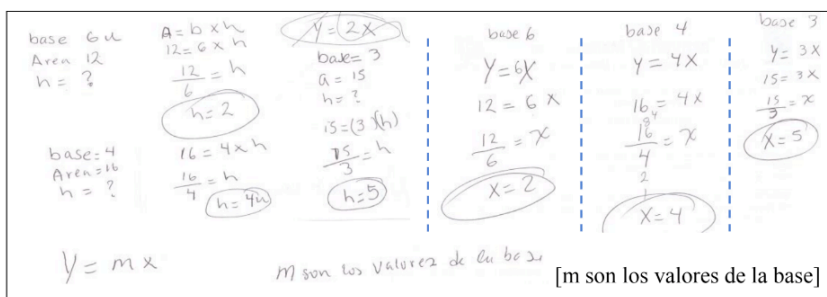 base 6u
Area 12
h = ?
A = b x h
12 = 6 x h
12/6 = h
h = 2
base = 4
Area = 16
h = ?
16 = 4 x h
16/4 = h
h = 4u
y = 2x
base = 3
a = 15
h = ?
15 = (3)(h)
15/3 = h
h = 5
base 6
y = 6x
12 = 6x
12/6 = x
x = 2
base 4
y = 4x
16 = 4x
16/4 = x
x = 4
base 3
y = 3x
15 = 3x
15/3 = x
x = 5
y = mx
m son los valores de la base
[m son los valores de la base]